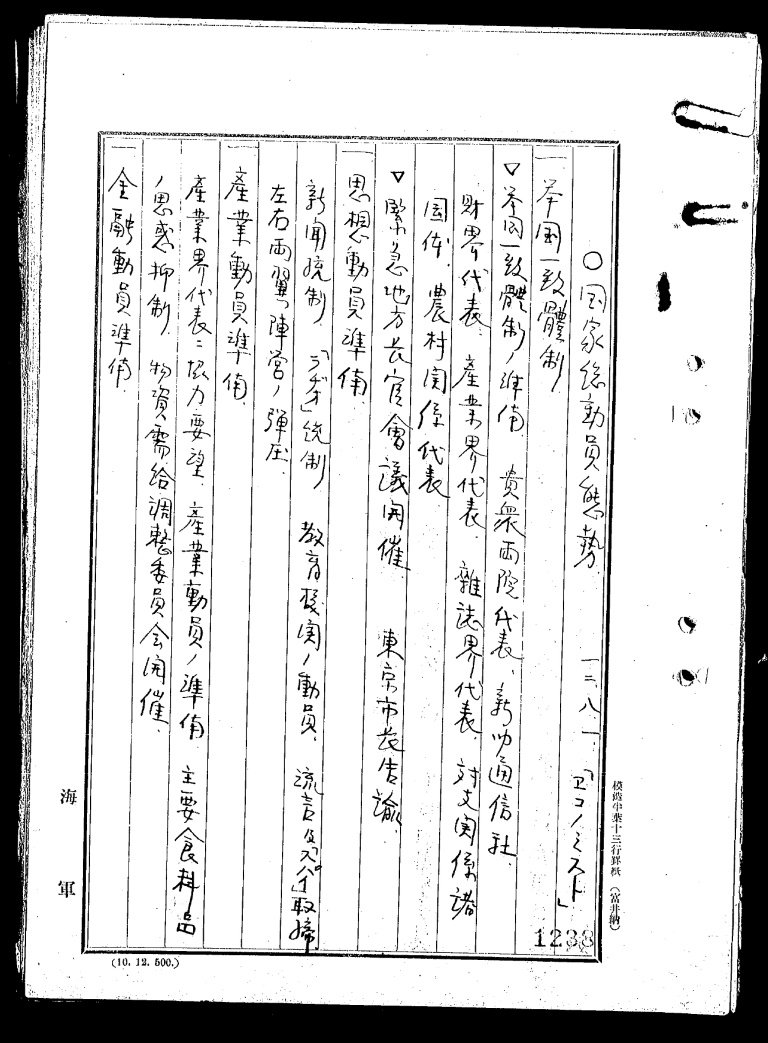 〇国家総動員態勢 一二、八、一、「エコノミスト」
一 挙国一致體制
▽挙国一致體制ノ準備 貴衆両院代表、新聞通信社、
財界代表、産業界代表、雑誌界代表、対支関係諸
団体、農村関係代表
▽緊急地方長官會議開催 東京市長告諭
一 思想動員準備
新聞統制、「ラヂオ」統制 教育機関ノ動員、流言及「スパイ」取締
左右両翼陣営ノ弾圧
一 産業動員準備
産業界代表ニ協力要望、産業動員ノ準備 主要食料品
ノ思惑抑制、物資需給調整委員会開催、
一 金融動員準備
模造半葉十三行罫紙(富井納)
1238
海軍
(10. 12. 500.)